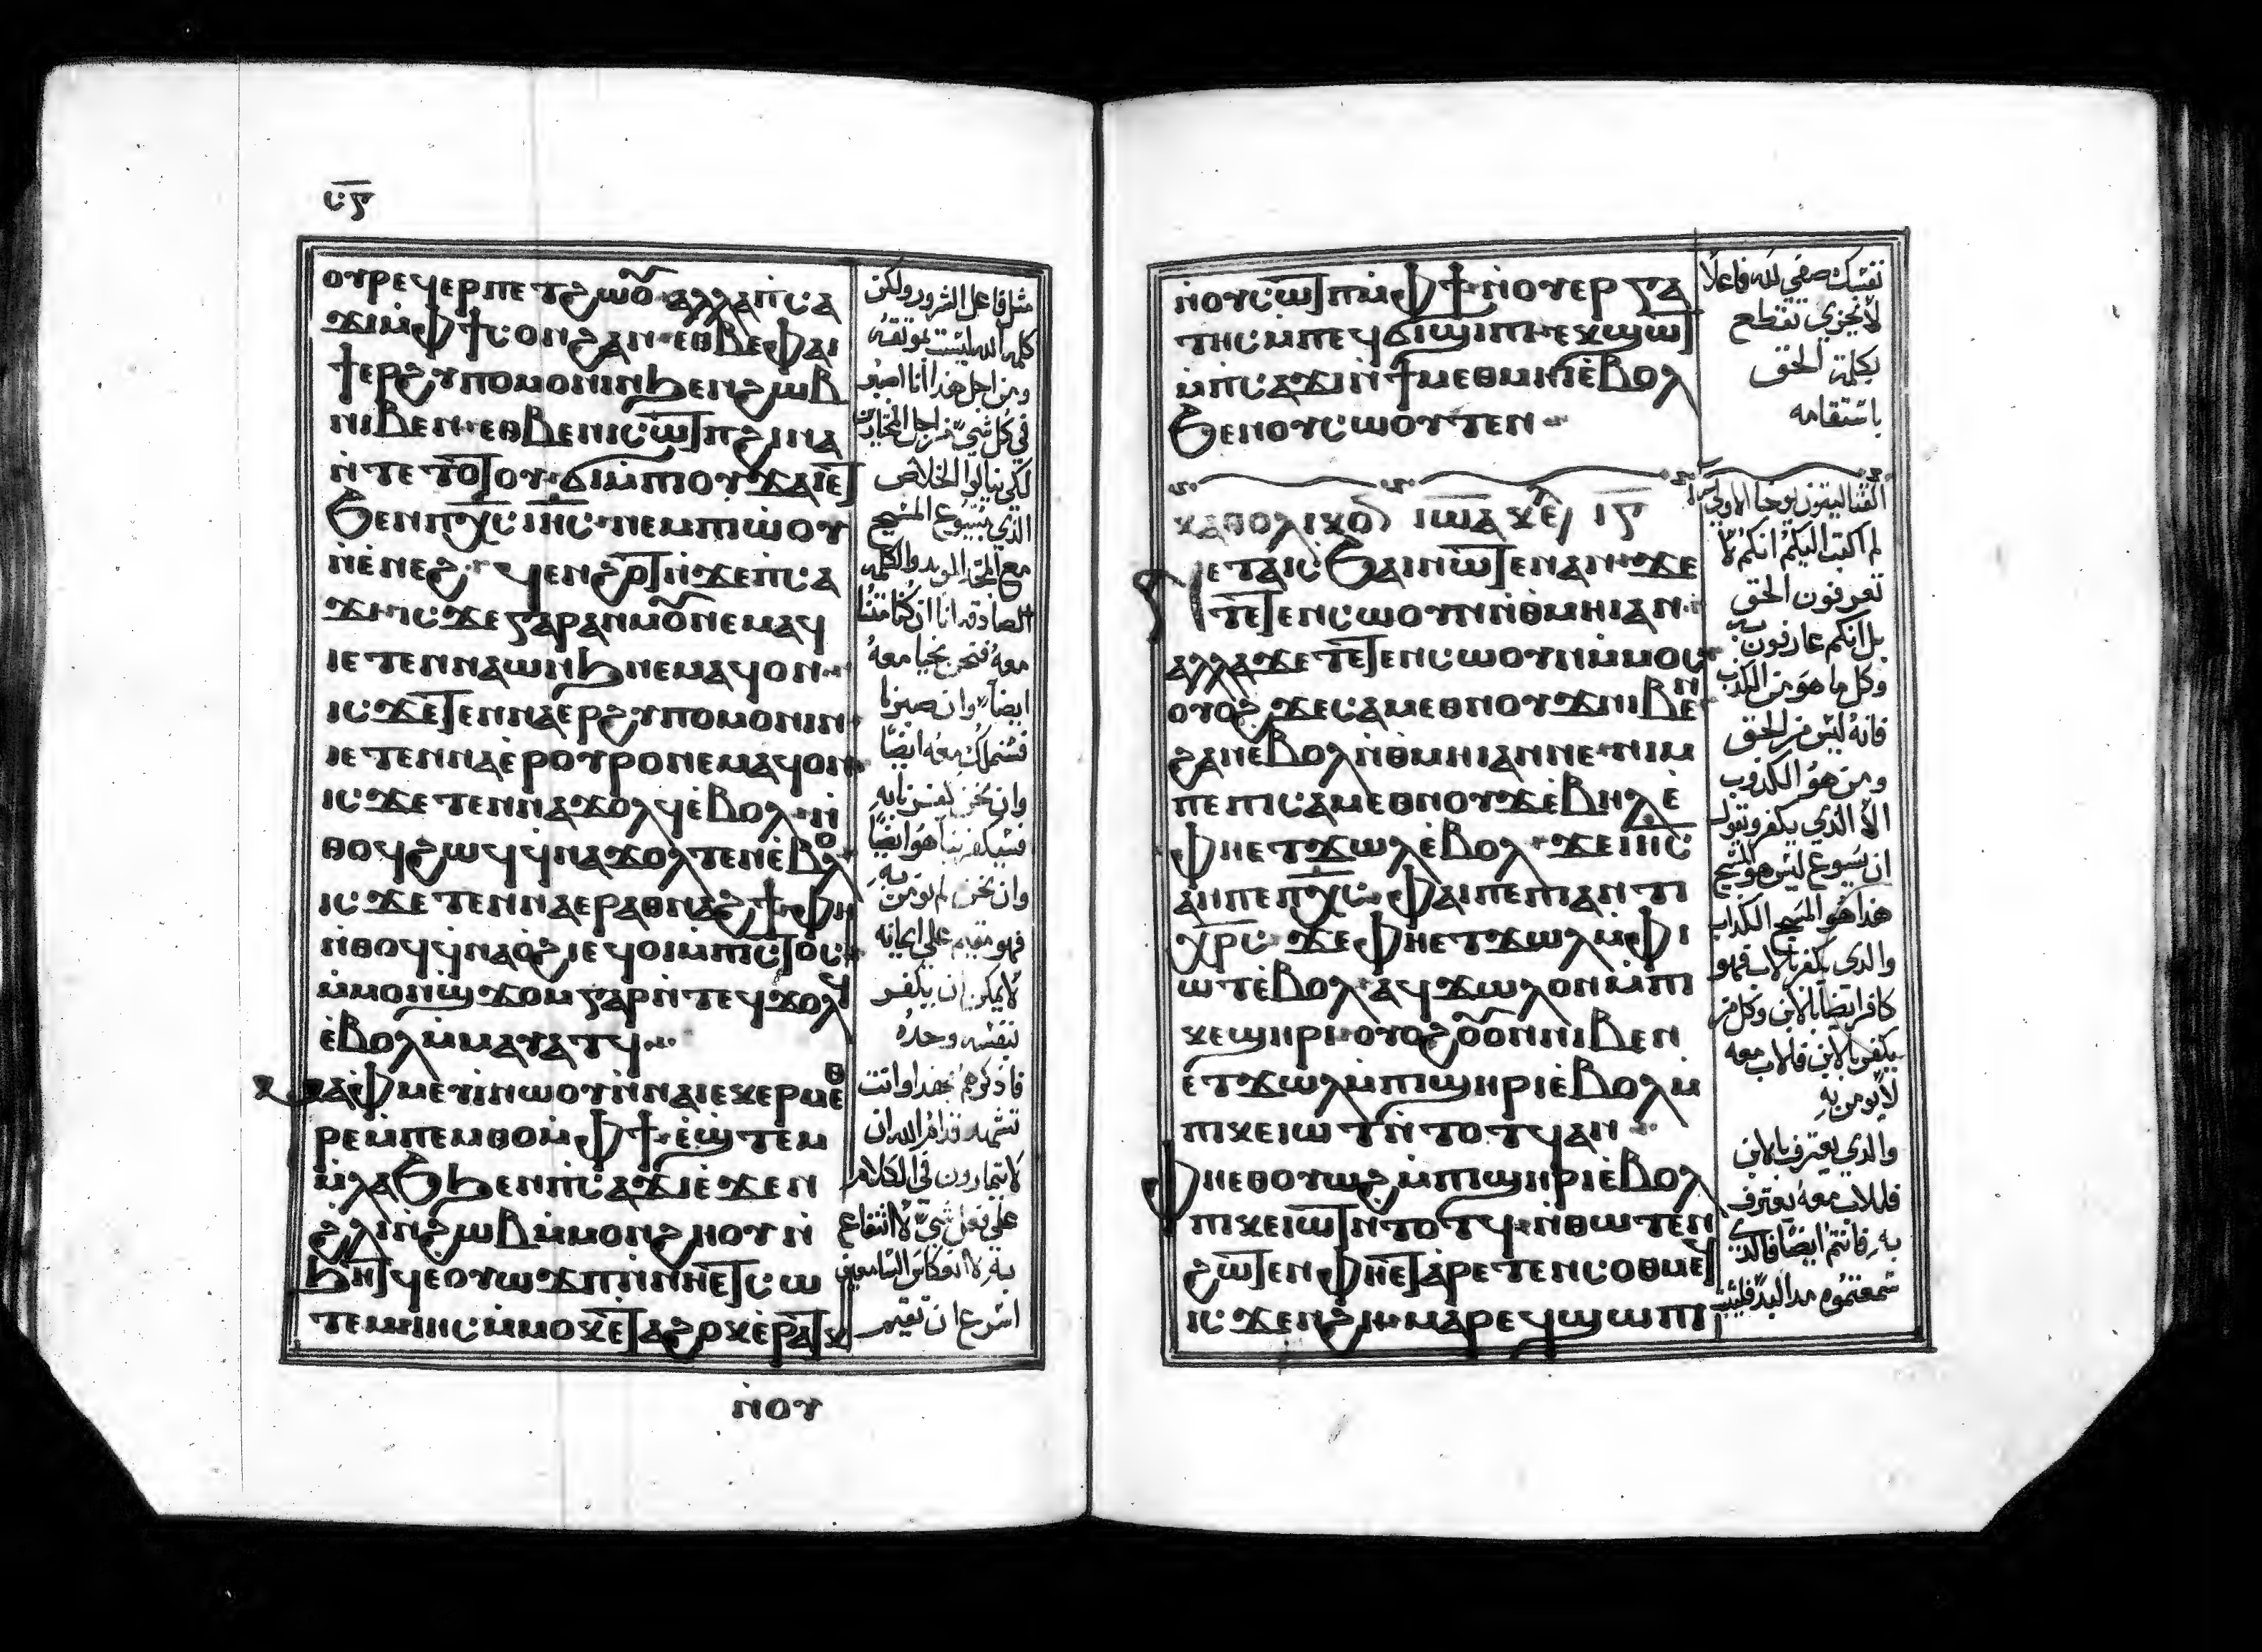 ⲥ̅ⲋ̅
ⲟⲩⲣⲉϥⲉⲣⲡⲉⲧϩⲱⲟ̃ⲁⲗⲗⲁⲡ̀ⲥⲁ
ϫⲓⲙ̀ⲫϯⲥⲟⲛϩⲁⲛ·ⲉⲑⲃⲉⲫⲁⲓ
ϯⲉⲣϩⲩⲡⲟⲙⲟⲛⲓⲛϧⲉⲛϩⲱⲃ
ⲛⲓⲃⲉⲛ·ⲉⲑⲃⲉⲛⲓⲥⲱⲧⲡϩⲓⲛⲁ
ⲛ̀ⲧⲉⲧⲟⲧⲟⲩ·ϭⲓⲙ̀ⲡⲟⲩϫⲁⲓⲉⲧ
ϧⲉⲛⲡⲭ̅ⲥ̅ⲓⲏ̅ⲥ̅·ⲛⲉⲙⲡⲓⲱ̀ⲟⲩ
ⲛ̀ⲉⲛⲉϩ· ϥⲉⲛϩⲟⲧⲛ̀ϫⲉⲡⲥⲁ
ϫⲓ·ⲓⲥϫⲉⲅⲁⲣⲁⲛⲙⲟ̃ⲛⲉⲙⲁϥ
ⲓⲉⲧⲉⲛⲛⲁⲱⲛϧⲛⲉⲙⲁϥⲟⲛ·
ⲓⲥϫⲉⲧⲉⲛⲛⲁⲉⲣϩⲩⲡⲟⲙⲟⲛⲓⲛ·
ⲓⲉⲧⲉⲛⲛⲁⲉ̀ⲣⲟⲩⲣⲟⲛⲉⲙⲁϥⲟⲛ·
ⲓⲥϫⲉⲧⲉⲛⲛⲁϫⲟⲗϥⲉ̀ⲃⲟⲗ·ⲛ̀
ⲑⲟϥϩⲱϥϥ̀ⲛⲁϫⲟⲗⲧⲉⲛⲉ̀ⲃⲟⲗ
ⲓⲥϫⲉⲧⲉⲛⲛⲁⲉⲣⲁⲑⲛⲁϩϯ·ⲫⲏ
ⲛ̀ⲑⲟϥϥ̀ⲛⲁⲟ̀ϩⲓⲉϥⲟⲓⲙ̀ⲡⲓⲥⲧⲟⲥ·
ⲙ̀ⲙⲟⲛϣϫⲟⲙⲅⲁⲣⲛ̀ⲧⲉϥϫⲟⲗϥ
ⲉ̀ⲃⲟⲗⲙ̀ⲙⲁⲩⲁⲧϥ·
ⲙⲁⲫⲙⲉⲩⲓⲛⲱⲟⲩⲛ̀ⲛⲁⲓⲉⲕⲉⲣⲙⲉⲑ
ⲣⲉⲙ̀ⲡⲉⲙⲑⲟⲙ̀ⲫϯ·ⲉ̀ϣⲧⲉⲙ
ⲙ̀ⲗⲁϧϧⲉⲛⲡⲥⲁϫⲓⲉ̀ϫⲉⲛ
ϩⲗⲓⲛ̀ϩⲱⲃⲙ̀ⲙⲟⲛϩⲏⲟⲩⲛ̀
ϧⲏⲧϥⲉⲟⲩⲱϫⲡⲛ̀ⲛⲏⲉⲧⲥⲱ
ⲧⲉⲙ·ⲓⲏⲥⲙ̀ⲙⲟⲕⲉⲧⲁϩⲟⲕⲉ̀ⲣⲁⲧⲕ
ⲛ̀ⲟⲩ
مثل فاعل الشرور ولكن
كلمه الله ليست بموثقه
ومن اجل هذا انا اصبر
في كل شي من اجل المختارين
لكي ينالوا الخلاص
الذي بيسوع المسيح
مع المجد الموبد والكلمه
الصادقه انا ان كنا متنا
معه فنحن نحيا معه
ايضا وان صبرنا
فسنملك معه ايضا
وان نحن كفرنا به
فسيكفر بنا هو ايضا
وان نحن لم نومن به
فهو مقيم علي امانته
لا يمكن ان يكفر
بنفسه وحده
فاذكرهم بهذا وانت
تشهد قدام الله ان
لا تمارون في الكلام
علي فعل شي لا انتفاع
به لانعكاس السامعين
اسرع ان تقيم
ⲛ̀ⲟⲩⲥⲱⲧⲡⲙ̀ⲫϯ·ⲛ̀ⲟⲩⲉⲣⲅⲁ
ⲧⲏⲥⲙ̀ⲡⲉϥϭⲓϣⲓⲡⲓ·ⲉϥϣⲱⲧ
ⲙ̀ⲡⲥⲁϫⲓⲛ̀ϯⲙⲉⲑⲙⲏⲓⲉ̀ⲃⲟⲗ
ϧⲉⲛⲟⲩⲥⲱⲟⲩⲧⲉⲛ·
ⲕⲁⲑⲟⲗⲓⲕⲟⲛ ⲓⲱⲁ ⲕⲉ ⲓⲋ
ⲛⲉⲧⲁⲓⲥϧⲁⲓⲛⲱⲧⲉⲛⲁⲛ·ϫⲉ
ⲧⲉⲧⲉⲛⲥⲱⲟⲩⲛⲛ̀ⲑⲙⲏⲓⲁⲛ·
ⲁⲗⲗⲁϫⲉⲧⲉⲧⲉⲛⲥⲱⲟⲩⲛⲙ̀ⲙⲟⲥ·
ⲟⲩⲟϩϫⲉⲥⲁⲙⲉⲑⲛⲟⲩϫⲛⲓⲃⲉⲛ
ϩⲁⲛⲉⲃⲟⲗⲛ̀ⲑⲙⲏⲓⲁⲛⲛⲉ·ⲛⲓⲙ
ⲡⲉⲡⲓⲥⲁⲙⲉⲑⲛⲟⲩϫⲉ̀ⲃⲏⲗⲉ̀
ⲫⲏⲉⲧϫⲱⲗⲉ̀ⲃⲟⲗ·ϫⲉⲓⲏ̅ⲥ̅
ⲁⲛⲡⲉⲡⲭ̅ⲥ̅·ⲫⲁⲓⲡⲉⲡⲓⲁⲛⲧⲓ
ⲭⲣⲥ·ϫⲉⲫⲏⲉⲧϫⲱⲗⲙ̀ⲫⲓ
ⲱⲧⲉ̀ⲃⲟⲗ·ⲁϥϫⲱⲗⲟⲛⲙ̀ⲡⲓ
ⲕⲉϣⲏⲣⲓ·ⲟⲩⲟϩⲟⲟ̃ⲛⲛⲓⲃⲉⲛ
ⲉ̀ⲧϫⲱⲗⲙ̀ⲡϣⲏⲣⲓⲉ̀ⲃⲟⲗⲙ
ⲡⲓⲕⲉⲓⲱⲧⲛ̀ⲧⲟⲧϥⲁⲛ·
ⲫⲏⲉⲑⲟⲩⲱⲛϩⲙ̀ⲡϣⲏⲣⲓⲉ̀ⲃⲟⲗ
ⲡⲓⲕⲉⲓⲱⲧⲛ̀ⲧⲟⲧϥ·ⲛ̀ⲑⲱⲧⲉⲛ
ϩⲱⲧⲉⲛⲫⲏⲉⲧⲁⲣⲉⲧⲉⲛⲥⲟⲑⲙⲉϥ
ⲓⲥϫⲉⲛϩⲏ·ⲙⲁⲣⲉϥϣⲱⲡⲓ
نفسك صفي لله فاعلا
لا يخزي تقطع
بكلمة الحق
باستقامه
القثاليقون يوحنا الاولي
لم اكتب اليكم انكم لا
تعرفون الحق
بل انكم عارفون به
وكل ما هو من الكذب
فانه ليس من الحق
ومن هو الكذوب
الا الذي يكفر ويقول
ان يسوع ليس هو المسيح
هذا هو المسيح الكذاب
والذي يكفر بالاب فهو
كافر ايضا بالابن وكل من
يكفر بالابن فالاب معه
لا يومن به
والذي يعترف بالابن
فللاب معه يعترف
به فانتم ايضا فالذي
سمعتموه من البدء فليثبت